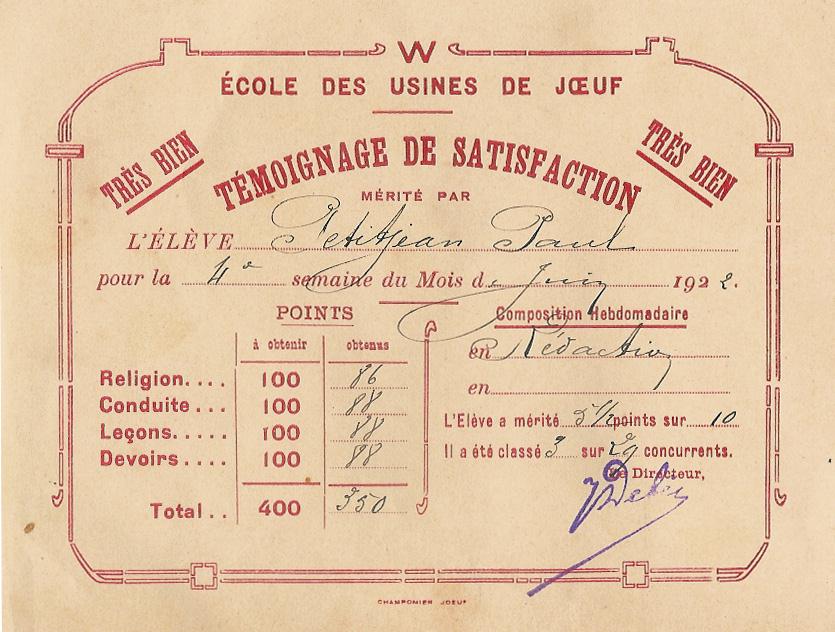 W
ÉCOLE DES USINES DE JŒUF
TRÈS BIEN
TRÈS BIEN
TÉMOIGNAGE DE SATISFACTION
MÉRITÉ PAR
L'ÉLÈVE Petitjean Paul
pour la 4e semaine du Mois d Juin 1922.
POINTS
à obtenir obtenus
Religion.... 100 86
Conduite... 100 88
Leçons..... 100 88
Devoirs.... 100 88
Total.. 400 350
Composition Hebdomadaire
en Rédaction
en
L'Elève a mérité 5 1/2 points sur 10
Il a été classé 3 sur 29 concurrents.
Le Directeur,
CHAMPOMIER JOEUF